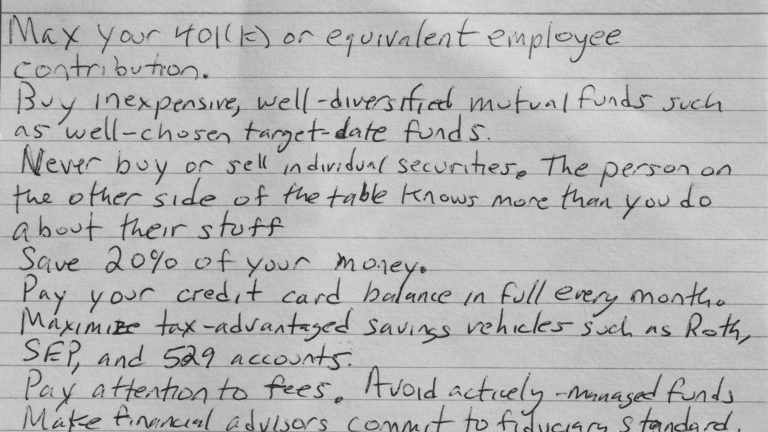 Max your 401(k) or equivalent employee
contribution.
Buy inexpensive, well-diversified mutual funds such
as well-chosen target-date funds.
Never buy or sell individual securities. The person on
the other side of the table knows more than you do
about their stuff
Save 20% of your money.
Pay your credit card balance in full every month.
Maximize tax-advantaged savings vehicles such as Roth,
SEP, and 529 accounts.
Pay attention to fees. Avoid actively-managed funds
Make financial advisors commit to fiduciary standard.